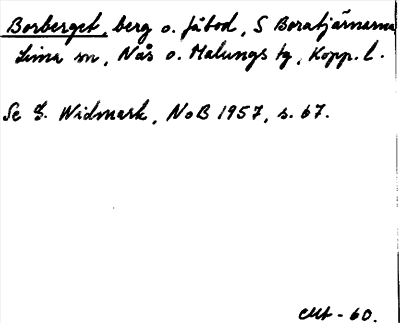 Borberget, berg o. fäbod, S Boratjärnarna
Lima sn, Nås o. Malungs tg, Kopp. l.
Se G. Widmark, NoB 1957, s. 67.
- 60.